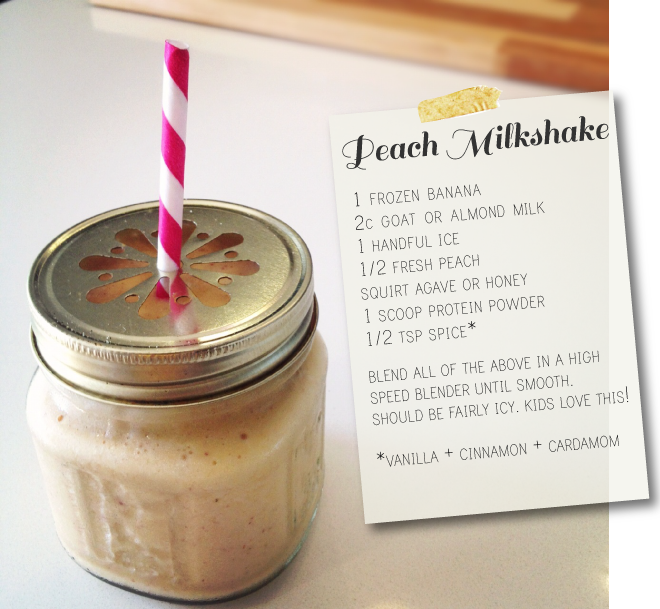 Peach Milkshake
1 FROZEN BANANA
2C GOAT OR ALMOND MILK
1 HANDFUL ICE
1/2 FRESH PEACH
SQUIRT AGAVE OR HONEY
1 SCOOP PROTEIN POWDER
1/2 TSP SPICE*
BLEND ALL OF THE ABOVE IN A HIGH
SPEED BLENDER UNTIL SMOOTH.
SHOULD BE FAIRLY ICY. KIDS LOVE THIS!
*VANILLA + CINNAMON + CARDAMOM